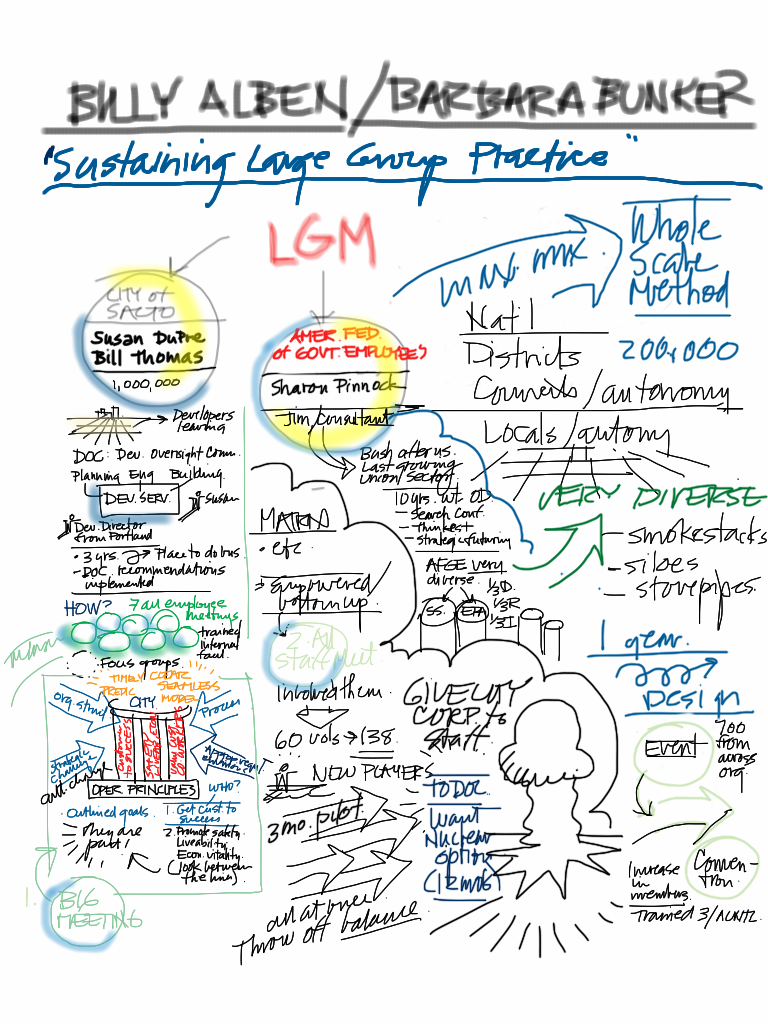 BILLY ALBEN / BARBARA BUNKER
"Sustaining Large Group Practice"
LGM
CITY of
SACTO
Susan DuPre
Bill Thomas
1,000,000
Developers
leaving
DOC: Dev. Oversight Comm.
Planning Eng Building
DEV. SERV.
Susan
Dev. Director
from Portland
• 3 yrs. → Place to do bus.
- DOC recommendations
implemented
HOW?
7 all employee
meetings
trained
internal
facil.
Focus groups
TIMELY
SEAMLESS
PREDIC
MODEL
CITY
Org. struct
Process
Strategic
Customer
TO SUCCESS
SAFETY
OPER PRINCIPLES
Outlined goals
They are
part!
WHO?
1. Get Cust to
success
2. Promote safety
Liveability
Econ. vitality
(look between
the lines)
1.
BIG
MEETING
AMER. FED.
of GOVT. EMPLOYEES
Sharon Pinnock
Jim/Consultant
Bush after us
Last growing
Union Sector
10 yrs. wt. OD
- Search Conf.
- Thinkest
- Strategic futuring
AFGE very
diverse.
1/3 D.
1/3 R
1/3 I.
SS.
EPA
MATRIX
• etc
Empowered/
bottom up
2. All
Staff Meet
Involved them
60 vols → 138
NEW PLAYERS
3 mo. pilot
all at once
Throw off balance
GIVE CITY
CORP. to
Staff
TO DOC
Want
Nuclear
option
Gizmos?
max. mix.
Whole
Scale
Method
Nat'l
Districts
200,000
Councils/autonomy
Locals/autony
VERY DIVERSE
- smokestacks
- siloes
- stovepipes
1 year
Design
EVENT
200
from
across
org.
Conven-
tion
Increase
in
members
Trained 3/